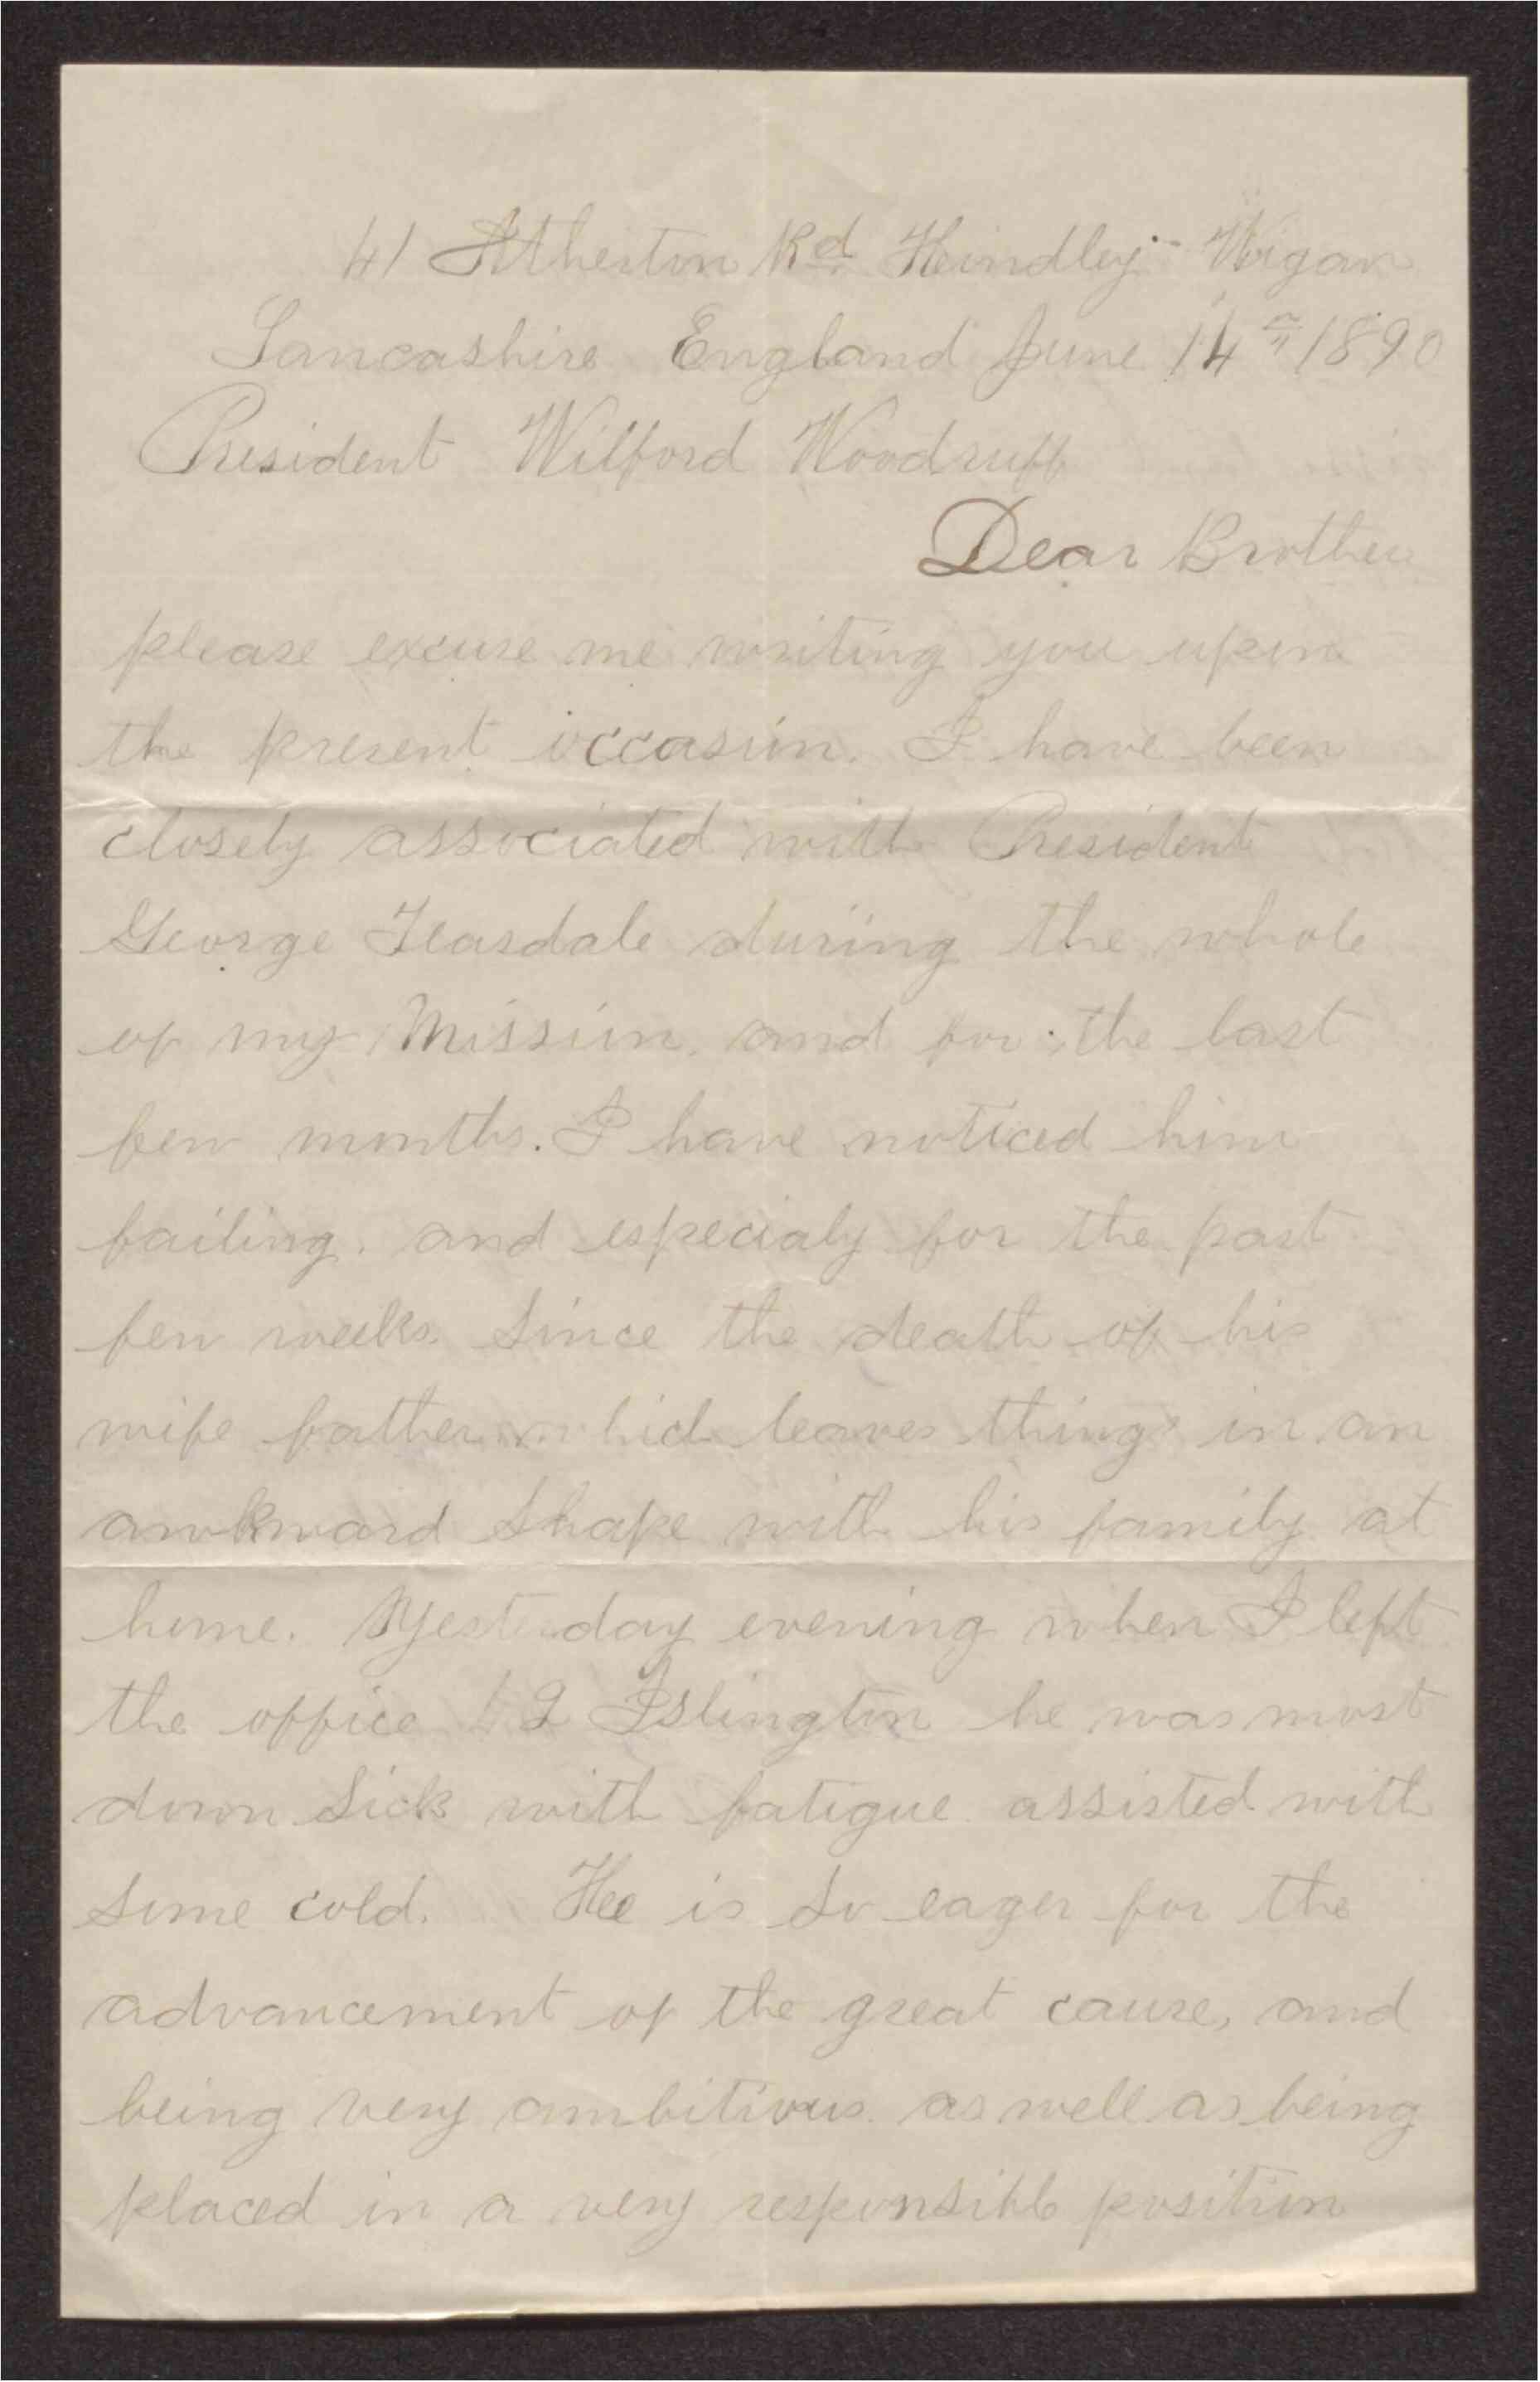 41 Atherton Rd Heindley Wigan
Lancashire England June 14th 1890
President Wilford Woodruff
Dear Brother
please excuse me writing you upon
the present occasion. I have been
closely associated with President
George Teasdale during the whole
of my Mission, and for the last
few months. I have noticed him
failing, and especialy for the past
few weeks. Since the death of his
wife father which leaves things in an
awkward Shape with his family at
home. Yesterday evening when I left
the office 42 Islington he was most
down Sick with fatigue assisted with
Some cold. Hee is So eager for the
advancement of the great cause, and
being very ambitious as well as being
placed in a very responsible position